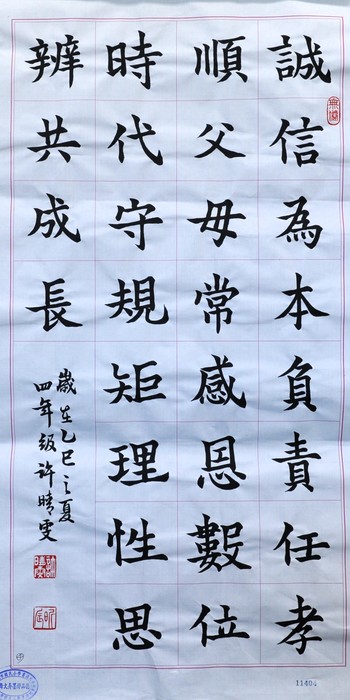 誠信為本負責任孝
順父母常感恩數位
時代守規矩理性思
辨共成長
歲在乙巳之夏
四年級許晴雯
11404